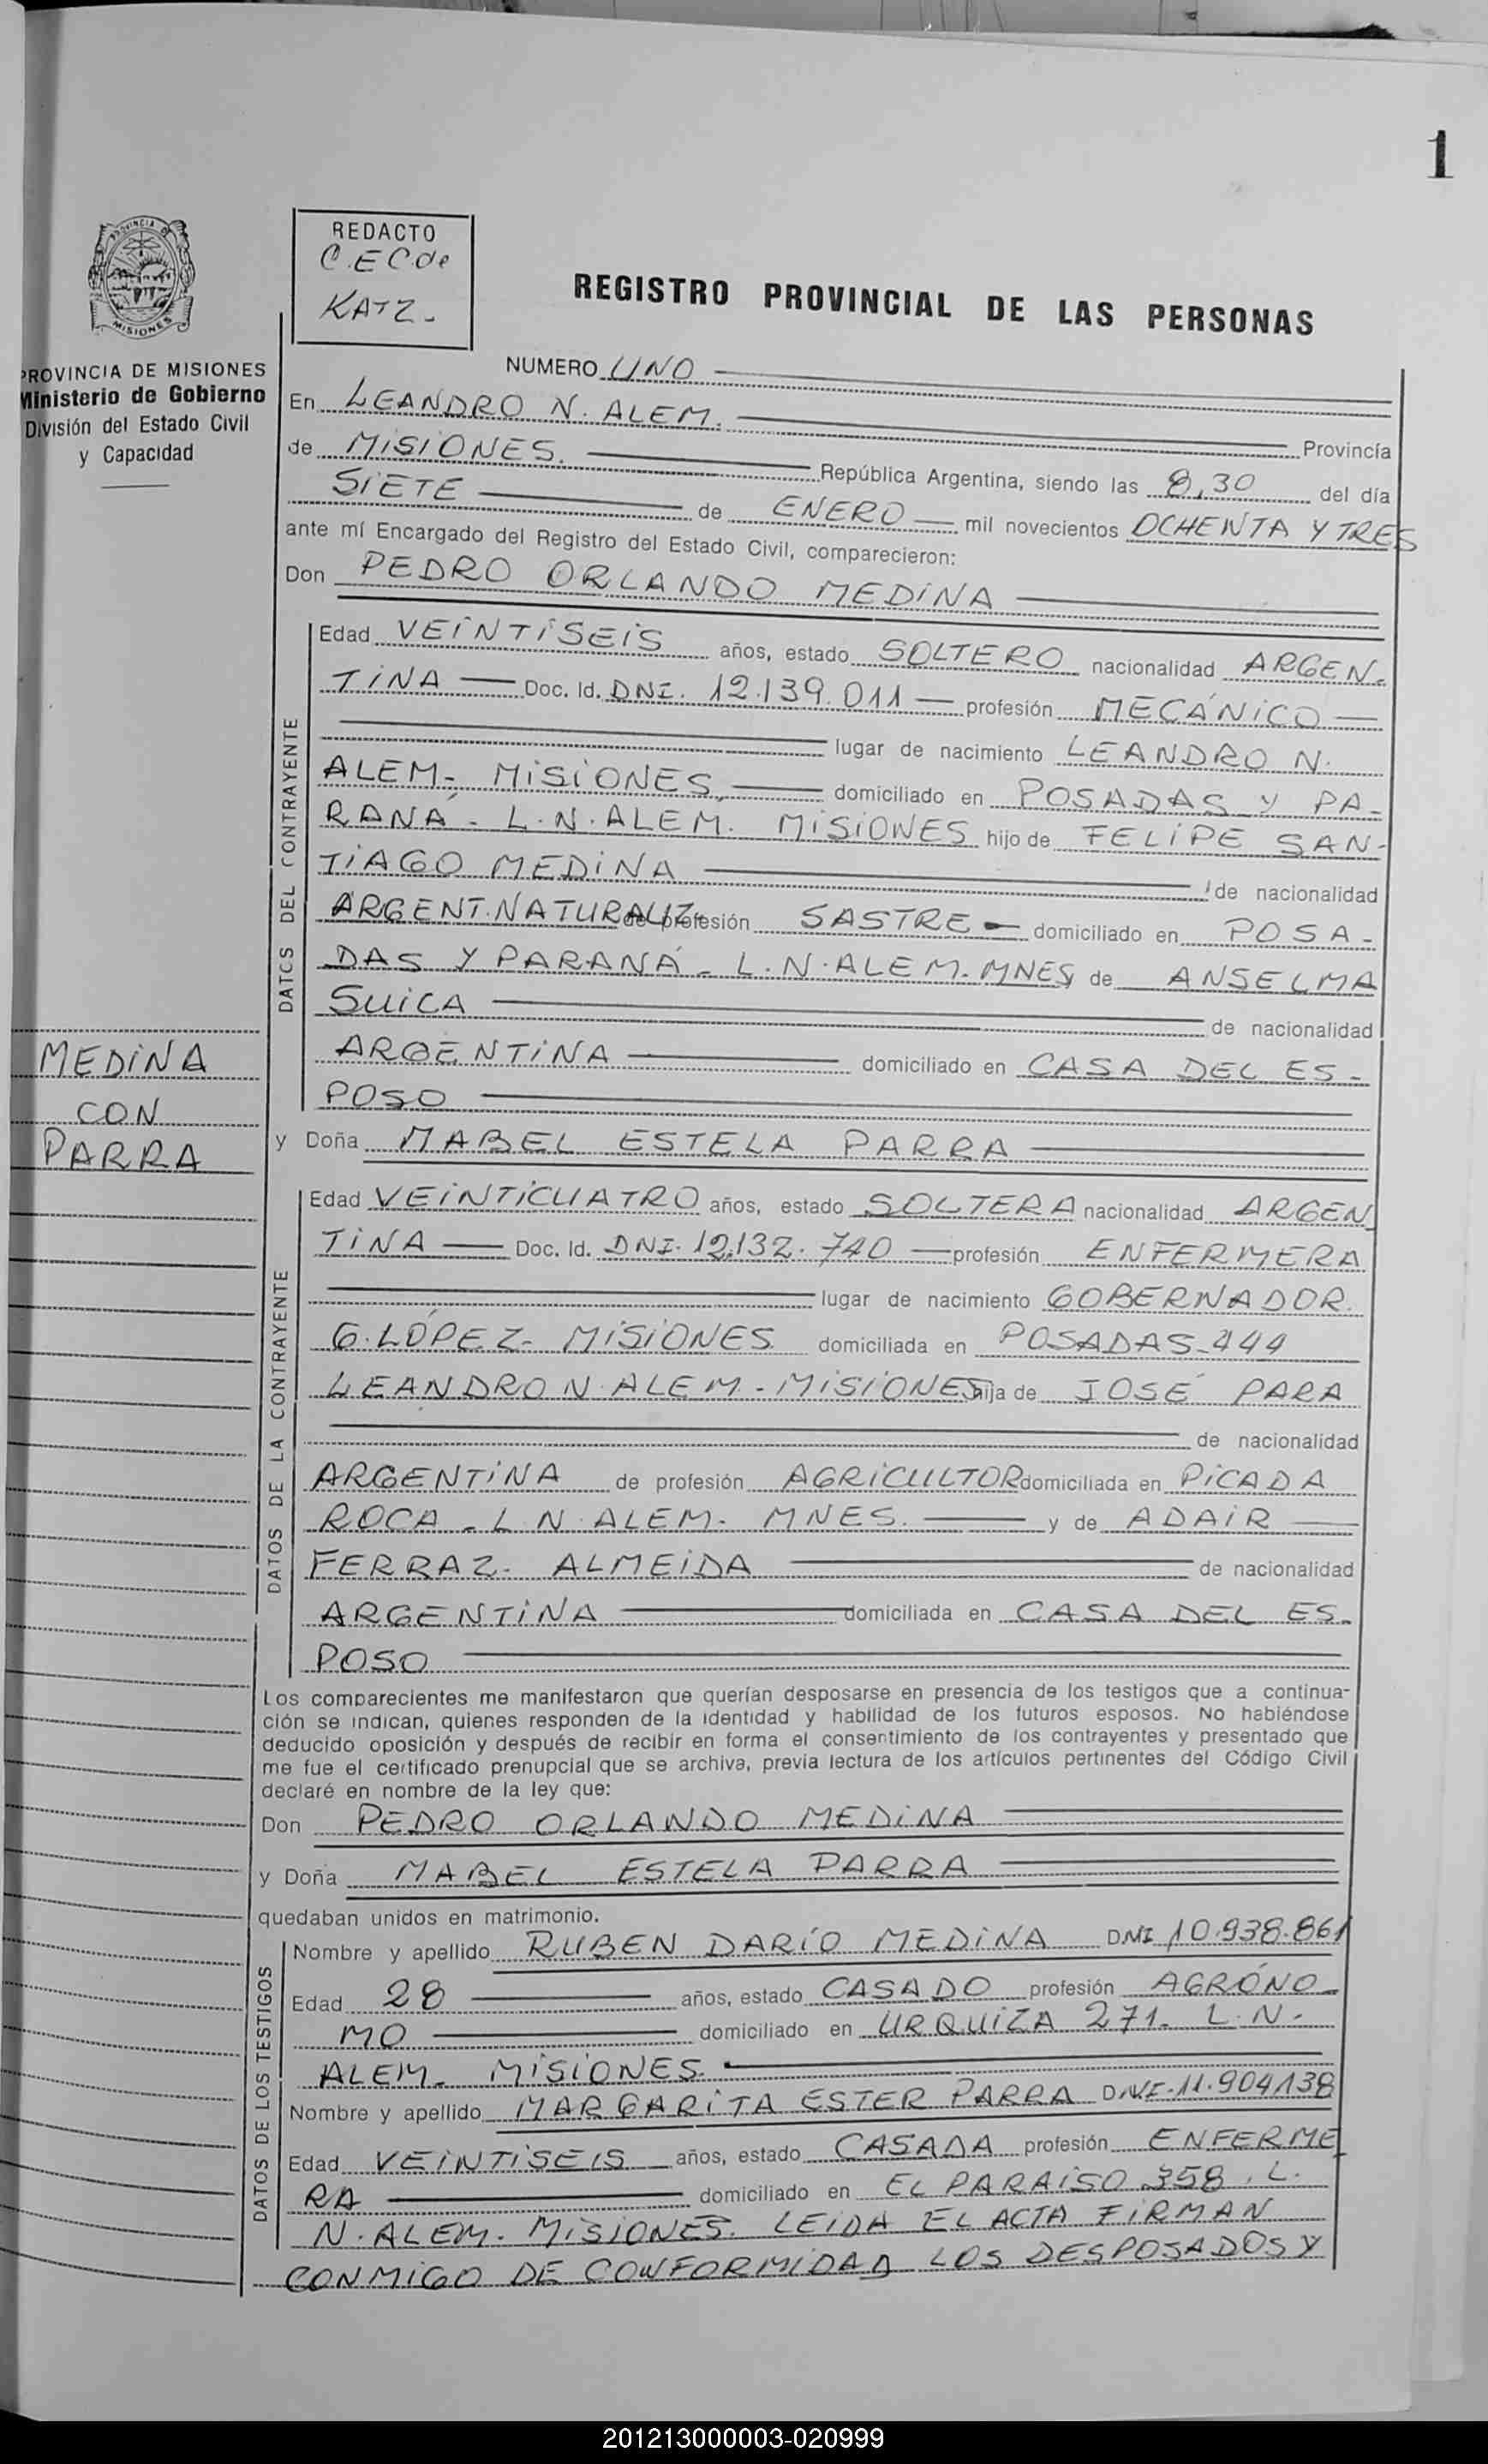 1
PROVINCIA DE
MISIONES
REDACTO
C.E C. de
KATZ-
REGISTRO PROVINCIAL DE LAS PERSONAS
PROVINCIA DE MISIONES
Ministerio de Gobierno
División del Estado Civil
y Capacidad
NUMERO UNO
En LEANDRO N. ALEM. Provincia
de MISIONES. República Argentina, siendo las 8,30 del día
SIETE de ENERO mil novecientos OCHENTA Y TRES
ante mí Encargado del Registro del Estado Civil, comparecieron:
Don PEDRO ORLANDO MEDINA
DATOS DEL CONTRAYENTE
Edad VEINTISEIS años, estado SOLTERO nacionalidad ARGEN-
TINA Doc. Id. DNI. 12.139.011 profesión MECÁNICO
lugar de nacimiento LEANDRO N.
ALEM- MISIONES, domiciliado en POSADAS Y PA-
RANÁ - L.N.ALEM. MISIONES hijo de FELIPE SAN-
TIAGO MEDINA de nacionalidad
ARGENT.NATURALIZ. de profesión SASTRE domiciliado en POSA-
DAS Y PARANÁ - L.N.ALEM.MNES y de ANSELMA
SUICA de nacionalidad
ARGENTINA domiciliado en CASA DEL ES-
POSO
MEDINA
CON
PARRA
y Doña MABEL ESTELA PARRA
DATOS DE LA CONTRAYENTE
Edad VEINTICUATRO años, estado SOLTERA nacionalidad ARGEN
TINA Doc. Id. DNI. 12.132.740 profesión ENFERMERA
lugar de nacimiento GOBERNADOR
G.LÓPEZ- MISIONES domiciliada en POSADAS-444
LEANDRO N. ALEM - MISIONES hija de JOSÉ PARA
de nacionalidad
ARGENTINA de profesión AGRICULTOR domiciliada en PICADA
ROCA - L N. ALEM- MNES. y de ADAIR
FERRAZ- ALMEIDA de nacionalidad
ARGENTINA domiciliada en CASA DEL ES-
POSO
Los comparecientes me manifestaron que querían desposarse en presencia de los testigos que a continua-
ción se indican, quienes responden de la identidad y habilidad de los futuros esposos. No habiéndose
deducido oposición y después de recibir en forma el consentimiento de los contrayentes y presentado que
me fue el certificado prenupcial que se archiva, previa lectura de los artículos pertinentes del Código Civil
declaré en nombre de la ley que:
Don PEDRO ORLANDO MEDINA
y Doña MABEL ESTELA PARRA
quedaban unidos en matrimonio.
DATOS DE LOS TESTIGOS
Nombre y apellido RUBEN DARÍO MEDINA DNI 10.938.861
Edad 28 años, estado CASADO profesión AGRÓNO-
MO domiciliado en URQUIZA 271- L.N-
ALEM- MISIONES.
Nombre y apellido MARGARITA ESTER PARRA DNI-11.904138
Edad VEINTISEIS años, estado CASADA profesión ENFERME
RA domiciliado en EL PARAISO 358. L.
N.ALEM- MISIONES. LEIDA EL ACTA FIRMAN
CONMIGO DE CONFORMIDAD LOS DESPOSADOS Y
201213000003-020999